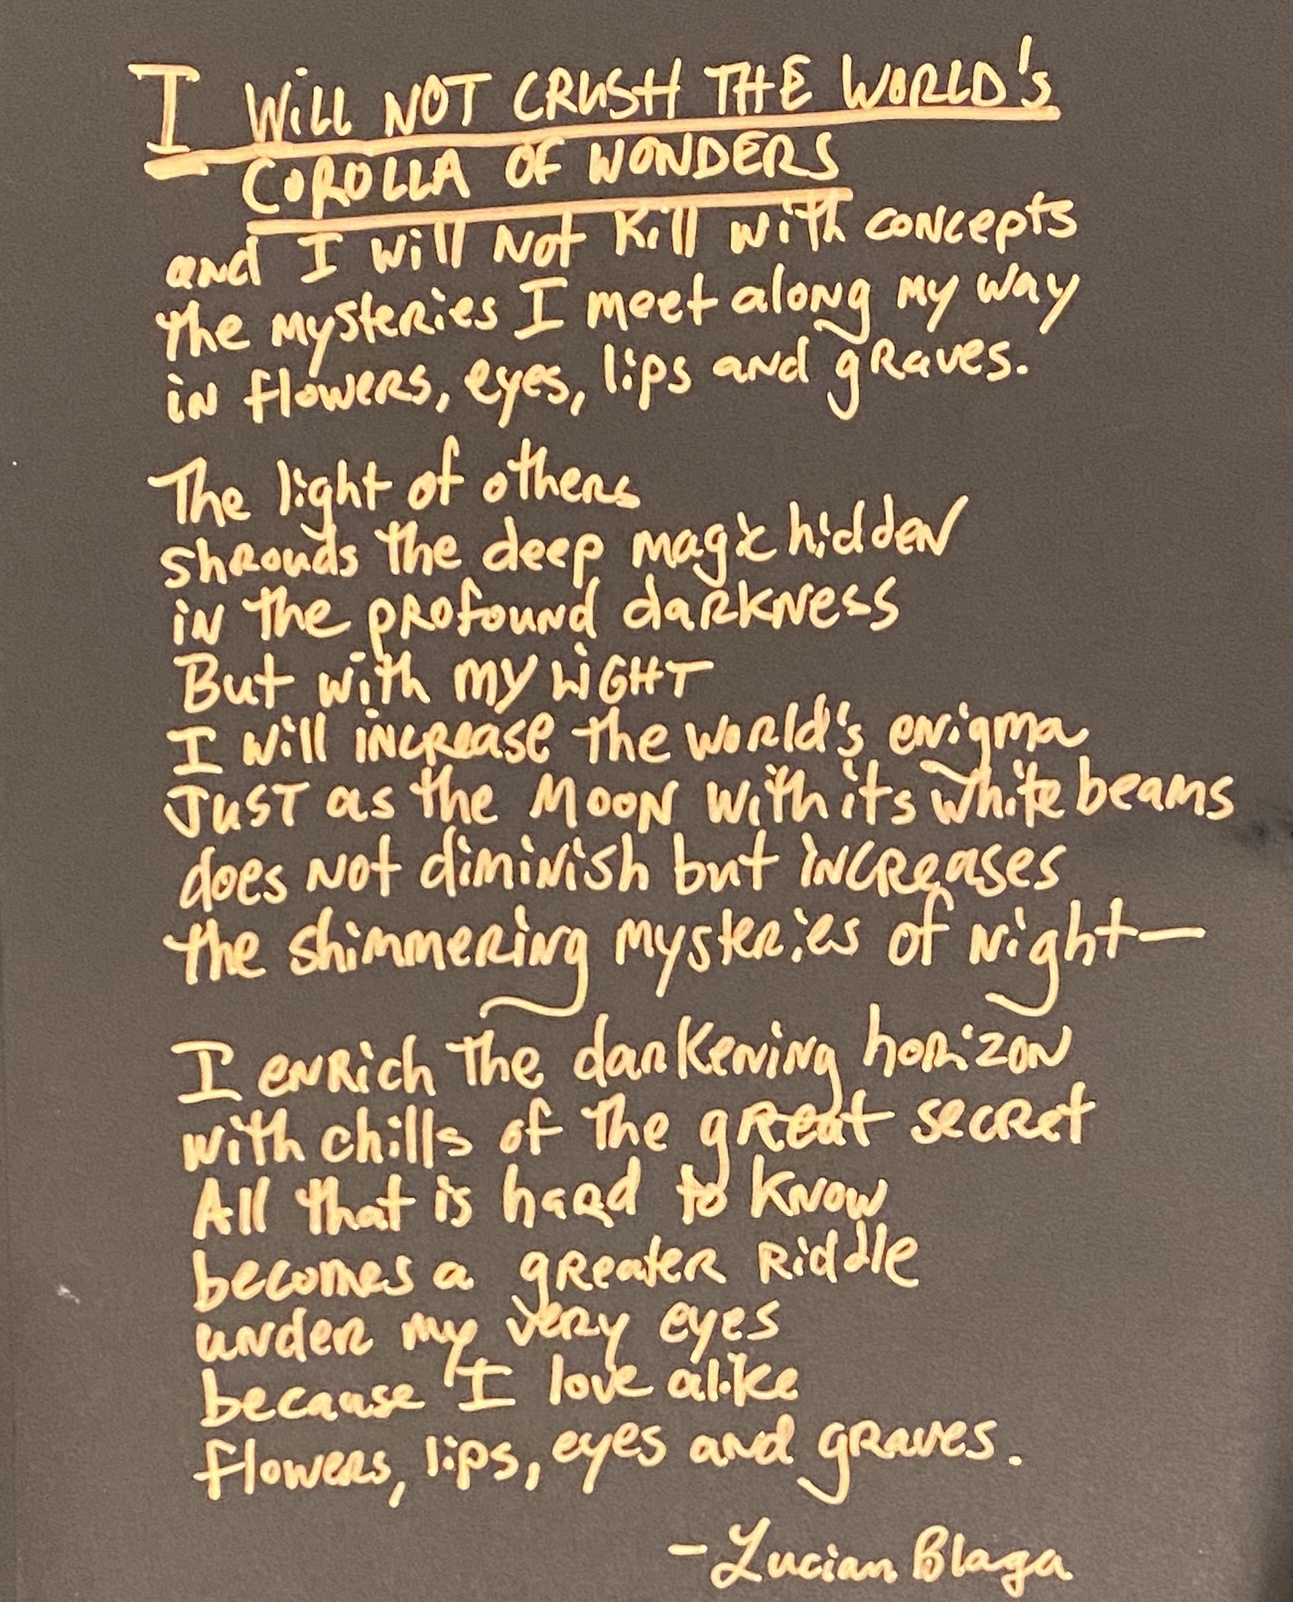 I WILL NOT CRUSH THE WORLD's
COROLLA OF WONDERS
and I will Not Kill with concepts
the mysteries I meet along my way
in flowers, eyes, lips and graves.
The light of others
shrouds the deep magic hidden
in the profound darkness
But with my LIGHT
I will increase the world's enigma
JUST as the MOON with its white beams
does Not diminish but increases
the shimmering mysteries of Night—
I enrich the darkening horizon
with chills of the great secret
All that is hard to know
becomes a greater Riddle
under my very eyes
because I love alike
flowers, lips, eyes and graves.
- Lucian Blaga